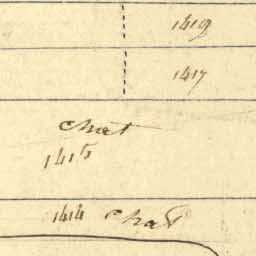 1419
1417
Chat
1415
1414 Chat